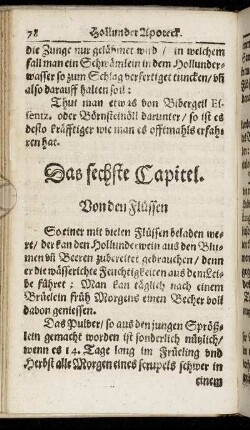 78 Hollunder Apoteck.
die Zunge nur gelähmet wird / in welchem
fall man ein Schwämlein in dem Hollunder-
wasser so zum Schlag verfertiget tuncken / vñ
also darauff halten soll:
Thut man etwas von Bibergeil Es-
sentz. oder Börnsteinöll darunter / so ist es
desto kräfftiger wie man es offtmahls erfah-
ren hat.
Das sechste Capitel.
Von den Flüssen
So einer mit vielen Flüssen beladen we-
re / der kan den Hollunderwein aus den Blu-
men vñ Beeren zubereitet gebrauchen / denn
er die wässerichte Feuchtigkeiten aus dem Lei-
be führet: Man kan täglich nach einem
Brüelein früh Morgens einen Becher voll
davon geniessen.
Das Pulver / so aus den jungen Spröß-
lein gemacht worden ist sonderlich nützlich /
wenn es 14. Tage lang im Früeling und
Herbst alle Morgen eines scrupels schwer in
einem